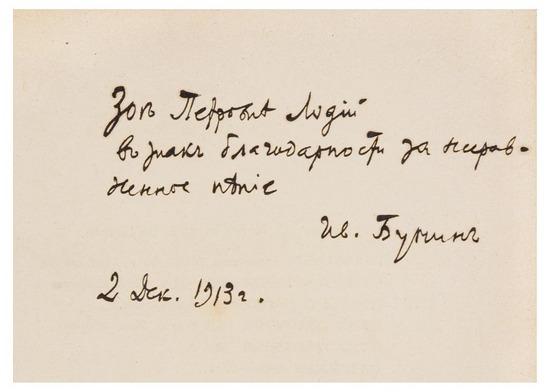 Зоѣ Петровнѣ Лодій
въ знакъ благодарности за несрав-
ненное пѣніе
Ив. Бунинъ
2 Дек. 1913 г.